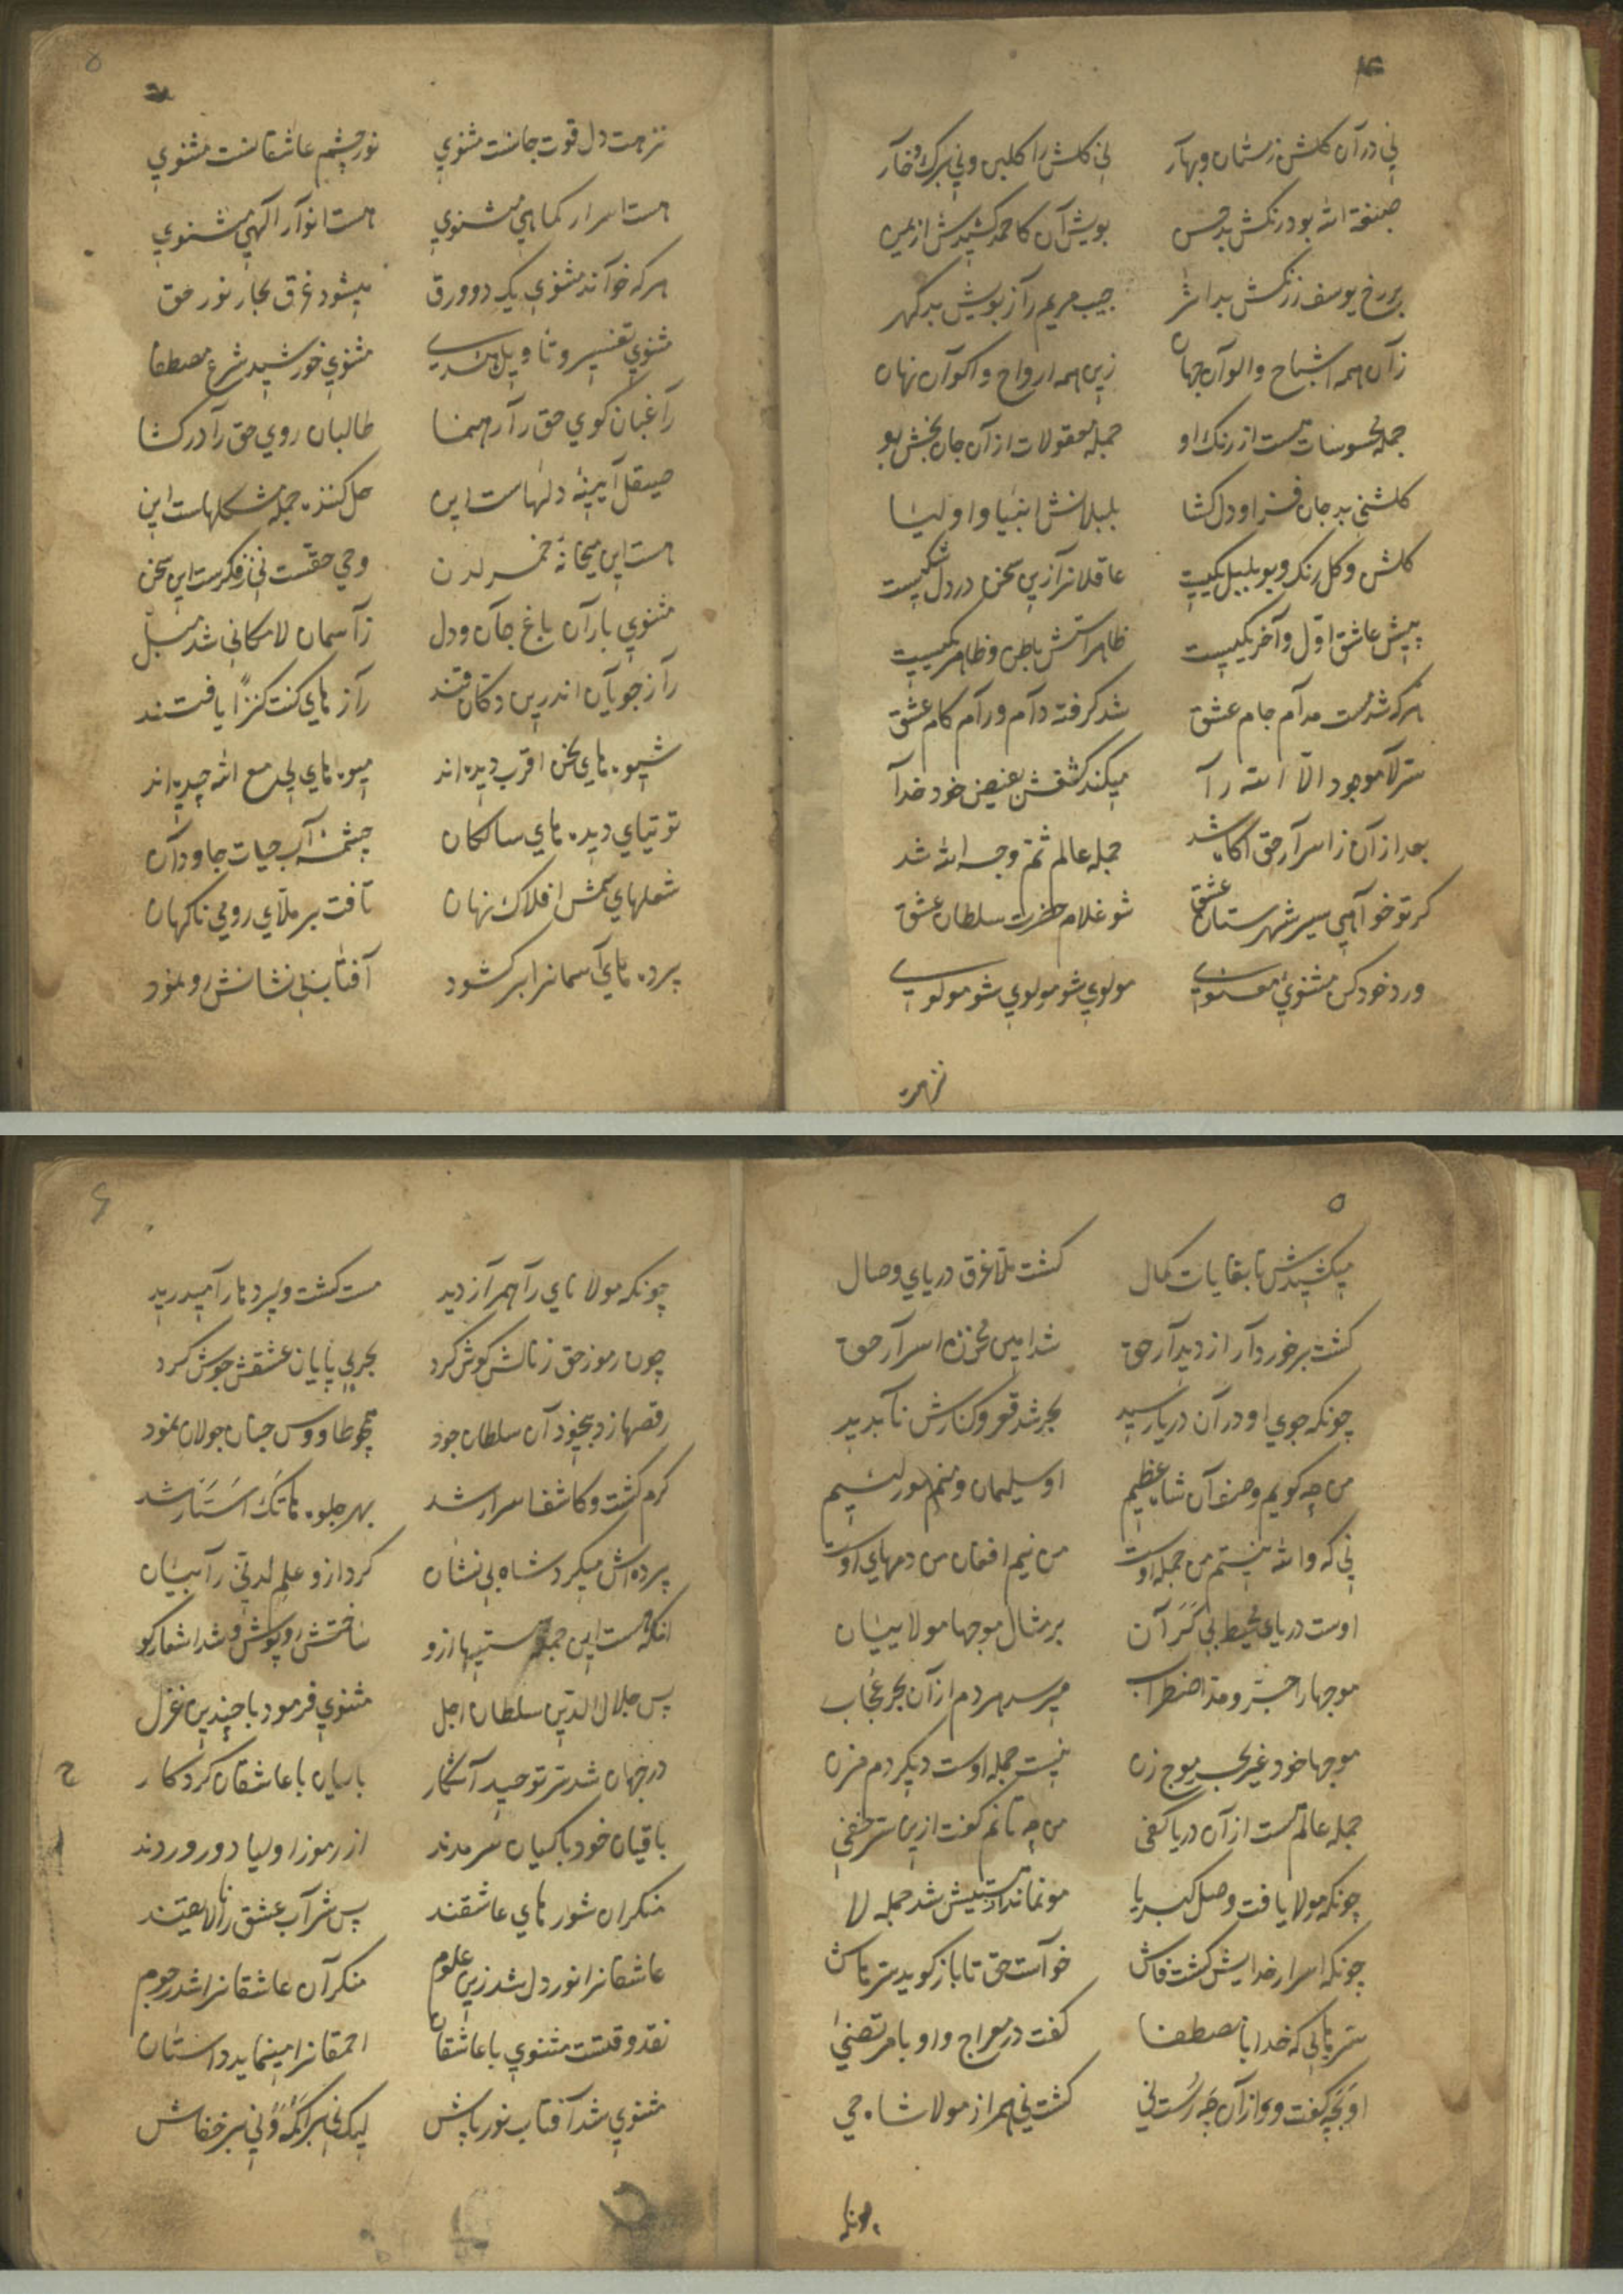 نی در آن گلشن زمستان و بهار نی گلش را گلبن و نی برگ و خار
صبغة الله بود رنگش بدحسن بویش آن کاحمد کشیدش از یمن
بر رخ یوسف ز رنگش بد اثر جیب مریم را ز بویش بد گهر
زان همه اشباح و الوان جهان زین همه ارواح و اکوان نهان
جمله محسوسات هست از رنگ او جمله معقولات از آن جان بخش بو
گلشنی بد جان فزا و دل گشا بلبلانش انبیا و اولیا
گلشن و گل رنگ و بو بلبل یکیست عاقلانرا زین سخن در دل شکیست
پیش عاشق اول و آخر یکیست ظاهرستش باطن و ظاهر یکیست
هر که شد مست مدام جام عشق شد گرفته دام و رام کام عشق
سر لا موجود الا الله را میکند کشفش بفیض خود خدا
بعد از آن ز اسرار حق آگاه شد جمله عالم ثم وجه الله شد
گر تو خواهی سیر شهرستان عشق شو غلام حضرت سلطان عشق
ورد خود کن مثنوی معنوی مولوی شو مولوی شو مولوی
نزهت
۵
نزهت دل قوت جانست مثنوی نور چشم عاشقانست مثنوی
هست اسرار کماهی مثنوی هست انوار الهی مثنوی
هر که خواند مثنوی یک دو ورق میشود غرق بحار نور حق
مثنوی تفسیر و تاویل هدی مثنوی خورشید شرع مصطفا
راغبان کوی حق را رهنما طالبان روی حق را درگشا
صیقل آیینه دلهاست این حل کننده جمله مشکلهاست این
هست این میخانهٔ خمر لدن وحی حقست نی ز فکرست این سخن
مثنوی باران باغ جان و دل ز آسمان لامکانی شد
راز جویان اندرین دکان قند راز های کنت کنزا یافتند
شیوه های نحن اقرب دیده اند میوه های لی مع الله چیده اند
توتیای دیده های سالکان چشمهٔ آب حیات جاودان
شعلهای شمس افلاک نهان تافت بر ملای رومی ناگهان
پرده های آسمانرا بر گشود آفتاب بی نشانش رو نمود
۵
میکشیدش تا بغایات کمال گشت ملا غرق دریای وصال
گشت برخوردار از دیدار حق شد امین مخزن اسرار حق
چونکه جوی او در آن دریا رسید بحر شد قعر و کنارش ناپدید
من چه گویم وصف آن شاه عظیم او سلیمان و منم مور لئیم
نی که والله نیستم من جمله اوست من نیم افغان من دمهای اوست
اوست دریای محیط بی کران بر مثال موجها مولا بیان
موجها را جزر و مد اضطراب میرسد هر دم از آن بحر عجاب
موجها خود غیر بحر موج زن نیست جمله اوست دیگر دم مزن
جمله عالم هست از آن دریا کفی من چه تانم گفت ازین سر خفی
چونکه مولا یافت وصل کبریا مو نماند هستیش شد جمله لا
چونکه اسرار خدایش گشت فاش خواست حق تا باز گوید سرهاش
سرهایی که خدا با مصطفا گفت در معراج و او با مرتضی
او بچه گفت و و از آن چه رست نی گشت نی همراز مولا شاه حی
چونکه
۶
چونکه مولا نای را همراز دید مست گشت و پردها را میدرید
چون رموز حق ز نالش گوش کرد بحر بی پایان عشقش جوش کرد
رقصها زد بیخود آن سلطان جود همچو طاووس جنان جولان نمود
گرم گشت و کاشف اسرار شد بهر جلوه هاتک استار شد
پرده اش میکرد شاه بی نشان کرد ازو علم لدنی را بیان
انکه هست این جمله هستیها ازو ساختش روپوش و شد اشعارگو
پس جلال الدین سلطان اجل مثنوی فرمود با چندین غزل
در جهان شد سر توحید آشکار با بیان با عاشقان کردگار
باقیان خود باکیان سرمدند از رموز اولیا دور و ردند
منکران شور های عاشقند پس شراب عشق را نالایقند
عاشقانرا نور دل شد زین علوم منکران عاشقانرا شد رجوم
نقد وقتست مثنوی با عاشقان احمقانرا مینماید داستان
مثنوی شد آفتاب نور پاش لیک نی بر اکمه و نی بر خفاش